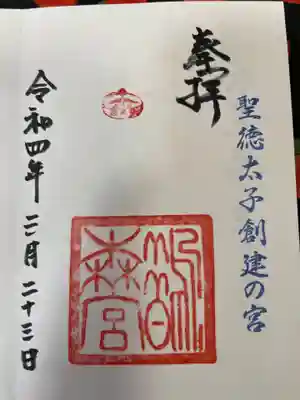 聖徳太子創建の宮
奉拝
鵲森宮
令和四年三月二十三日